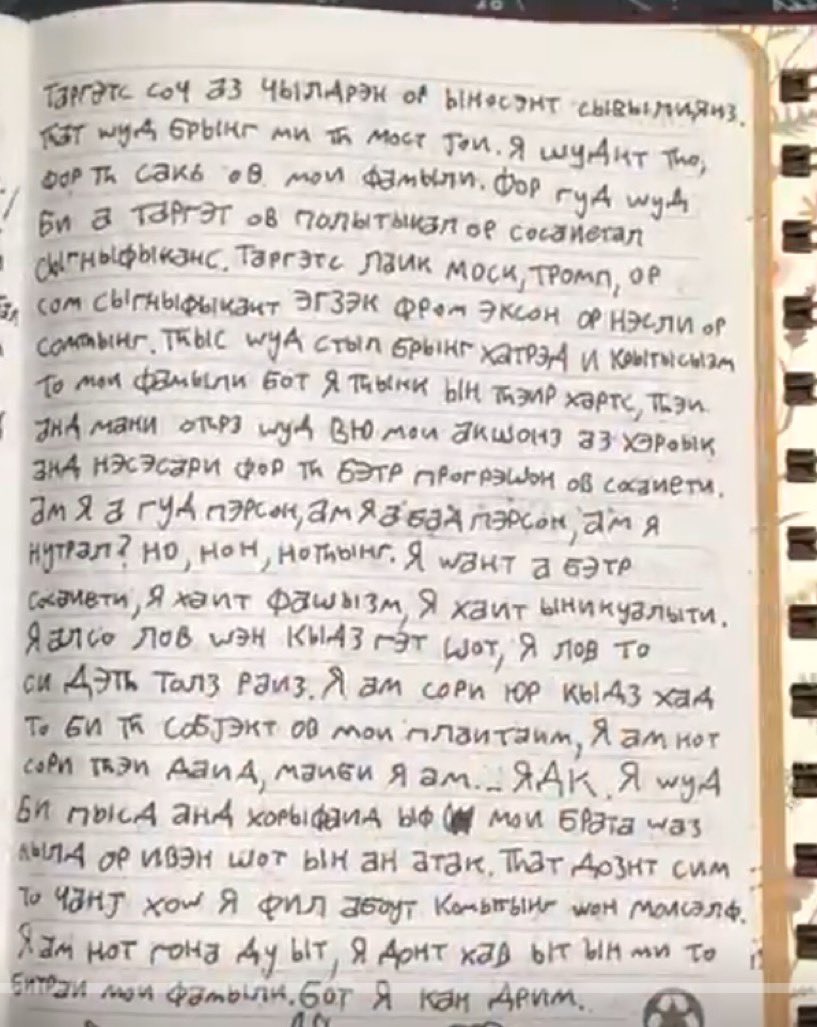 Таргэтс соч аз чылдрэн ор ыносэнт сывылиянз.
Тһат wуд брынг ми тһ мост јои. Я wуднт тһо,
фор тһ сакь ов мои фамыли. Фор гуд wуд
би а таргэт ов политыкал ор сосаиетал
сыгныфыканс. Таргэтс лаик моск, тромп, ор
сом сыгныфыкант эгзэк фром эксон ор нэсли ор
сомтһынг. Тһыс wуд стыл брынг хатрэд и крытысызм
то мои фамыли бот я тһынк ын тһэир хартс, тһэи
анд мани отһрз wуд вю мои акшонз аз хэроык
анд нэсэсари фор тһ бэтр прогрэшон ов сосаиети.
Ам я а гуд пэрсон, ам я а бад пэрсон, ам я
нутрал? но, нон, нотһынг. Я wант а бэтр
сосаиети, я хаит фашызм, я хаит ыникуалыти.
Я алсо лов wэн кыдз гэт шот, я лов то
си дэтһ толз раиз. Я ам сори юр кыдз хад
то би тһ собјэкт ов мои плаитаим, я ам нот
сори тһэи даид, маиби я ам... ЯДК. Я wуд
би пысд анд хорыфаид ыф мои брата wаз
кылд ор ивэн шот ын ан атак. Тһат дознт сим
то чанј хоw я фил абоут комытынг wон моисэлф.
Я ам нот гона ду ыт, я донт хав ыт ын ми то
битраи мои фамыли. Бот я кан дрим.